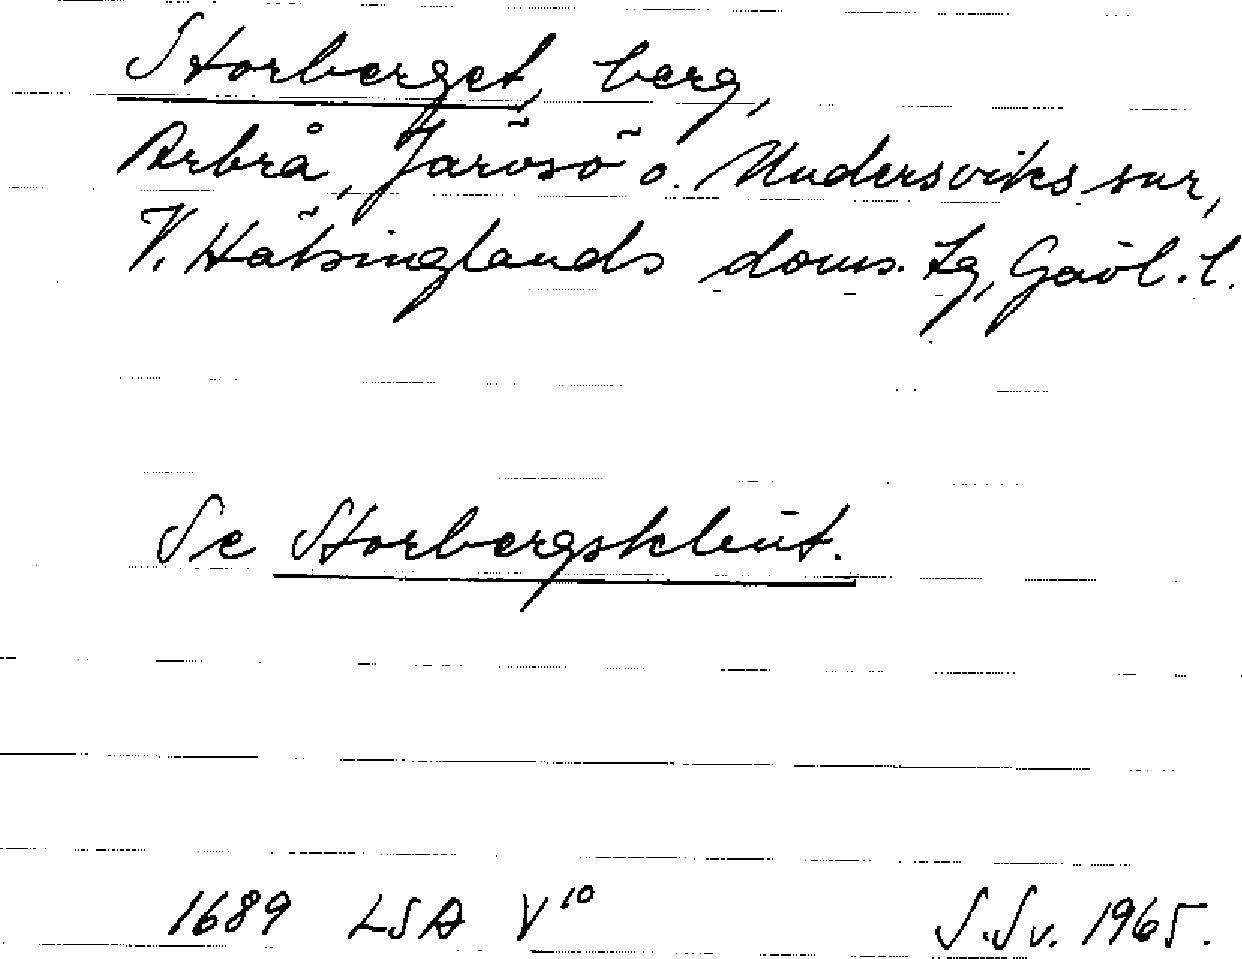 Storberget, berg,
Arbrå, Järvsö o. Undersviks snr,
V. Hälsinglands doms. tg, Gävl. l.
Se Storbergsklint.
1689 LSA V10
S.Sv. 1965.